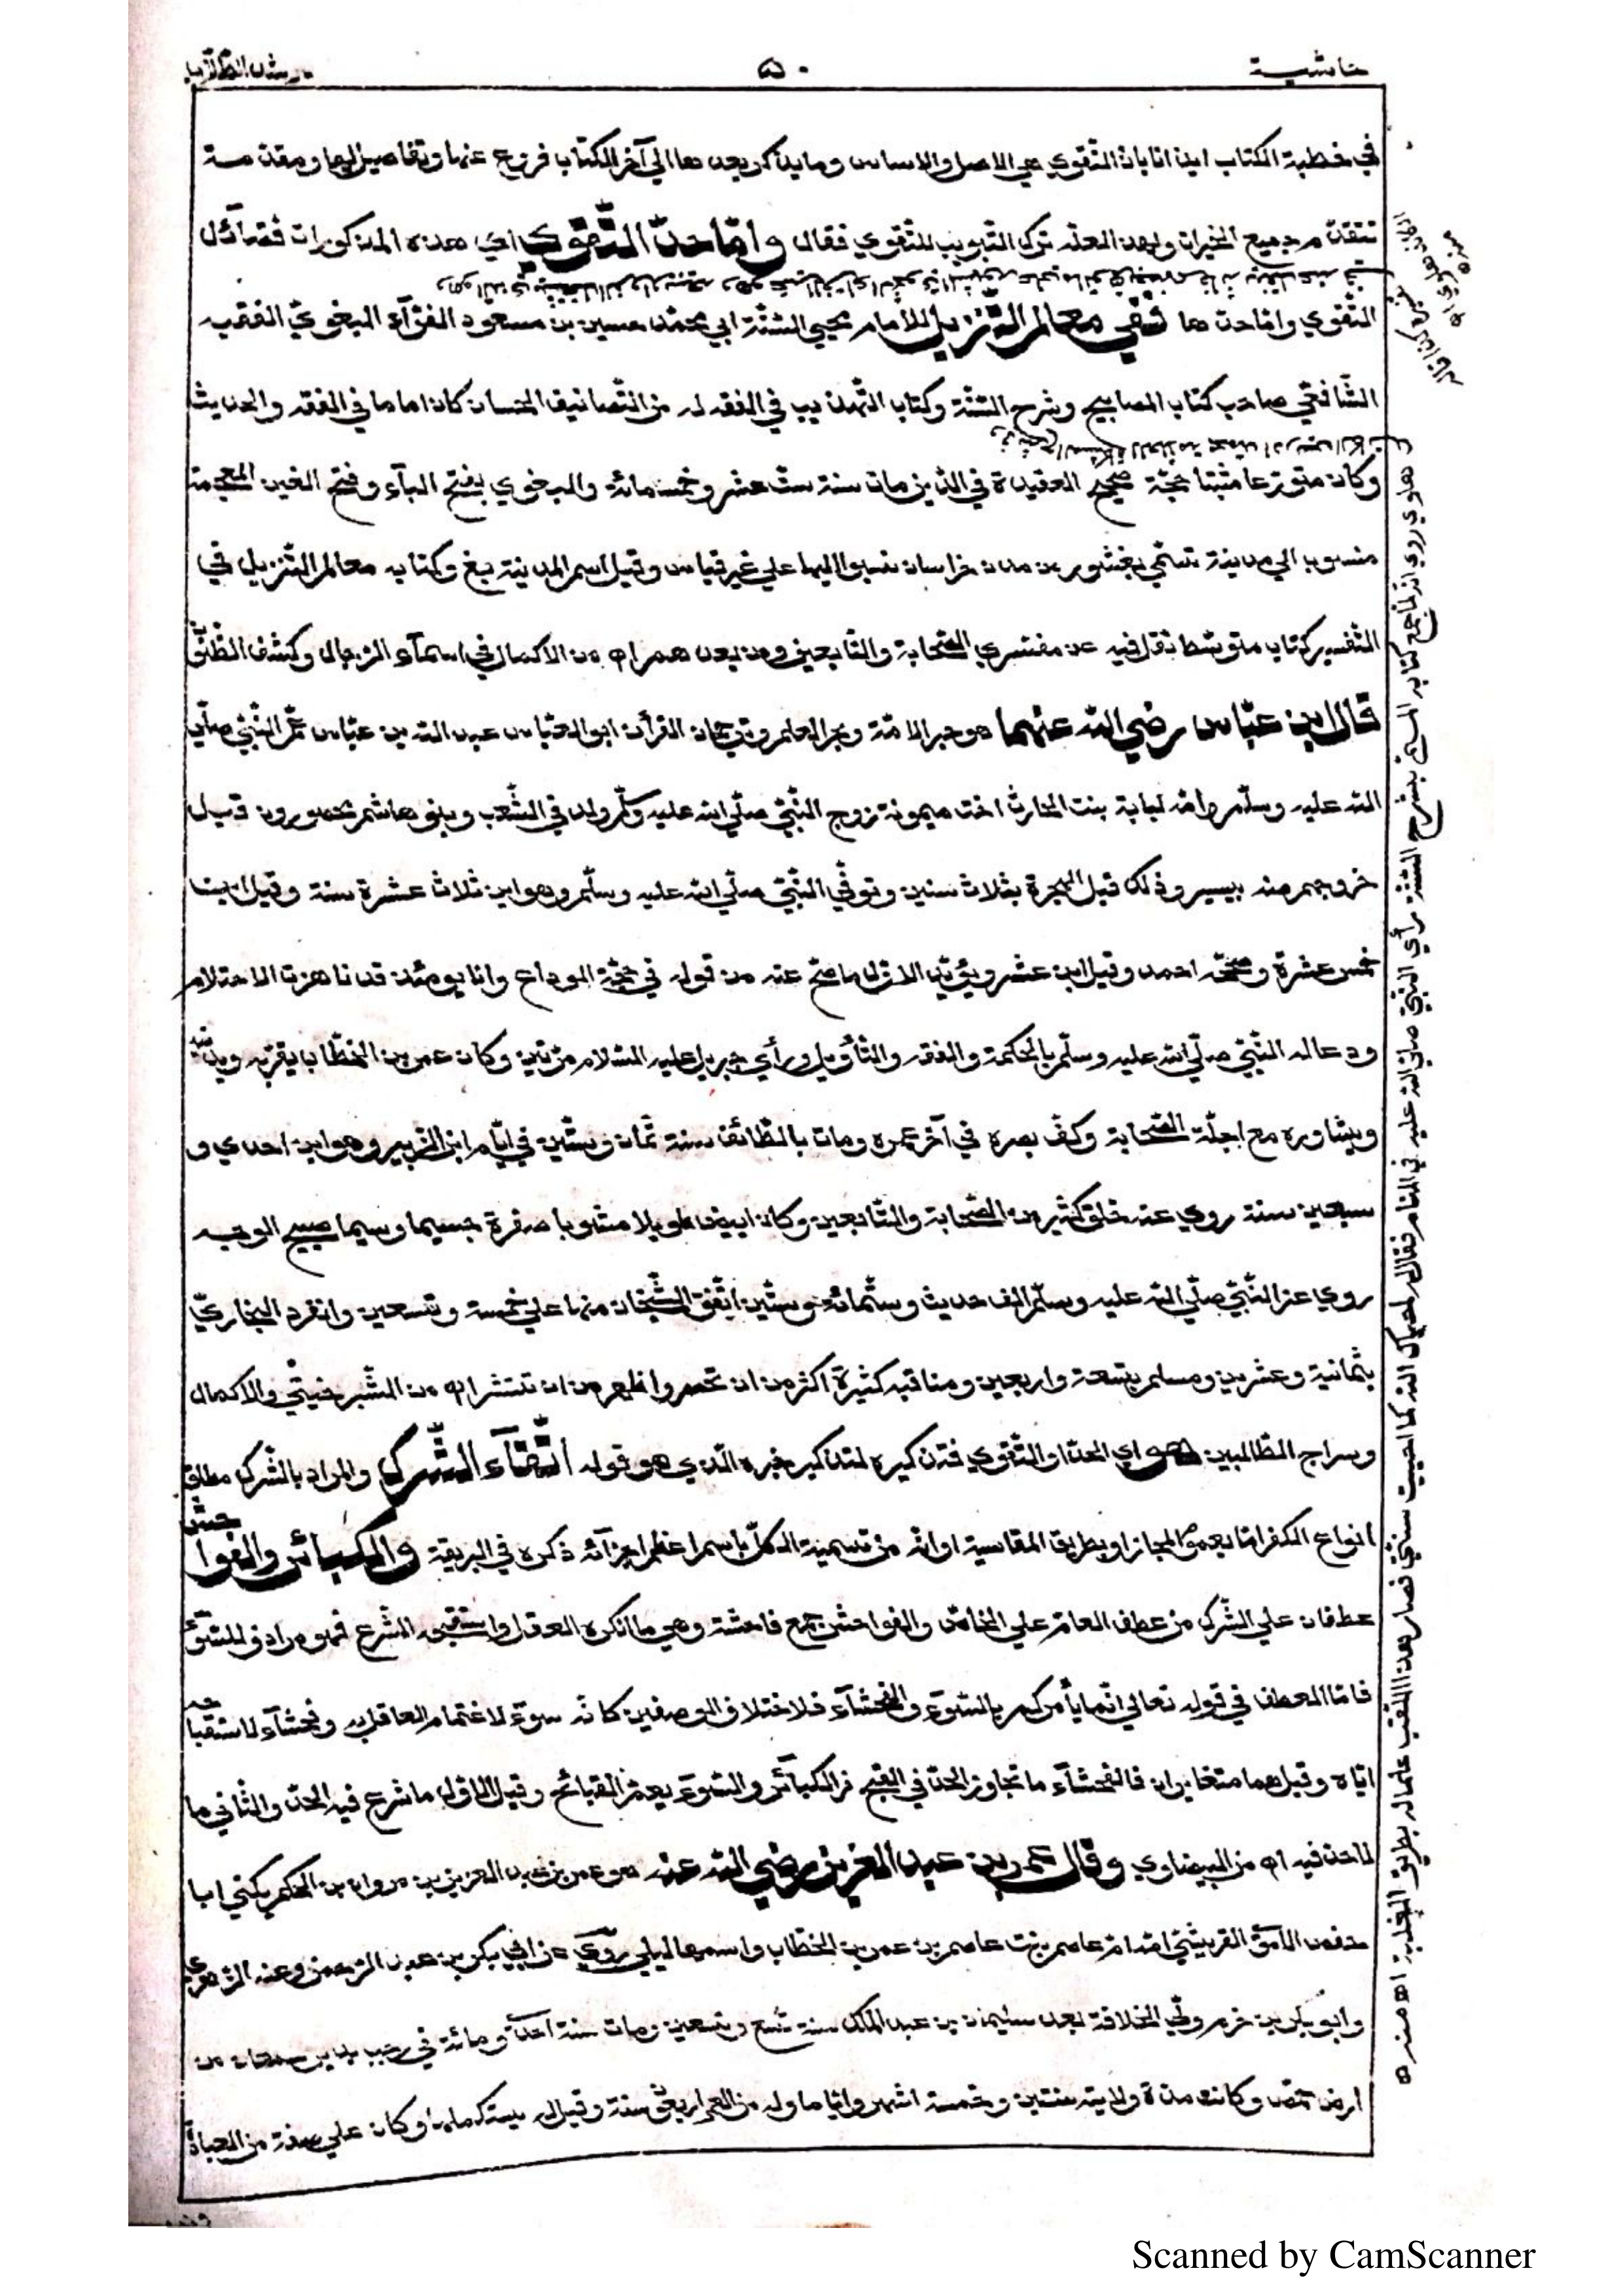 حاشية
٥٠
في خطبة الكتاب ايذانا بان التّقوي هي الاصل والاساس وما يذكر بعدها الي آخر الكتاب فروع عنها وتفاصيل لها ومقدمة
من جميع الخيرات ولهذا لعلّه ترك التبويب للتّقوي فقال وامّا حدّ التّقوي اي هذه المذكورات فضآئل
التّقوي وامّا حدها ففي معالم التّنزيل للامام محيي السّنّة ابي محمّد حسين بن مسعود الفرّآء البغوي الفقيه
الشّافعي صاحب كتاب المصابيح وشرح السّنّة وكتاب التّهذيب في الفقه له من التّصانيف الحسان كان اماما في الفقه والحديث
وكان متورّعا مثبتا حجّة صحيح العقيدة في الدّين مات سنة ستّ عشر وخمسمائة والبغوي بفتح البآء وفتح الغين المعجمة
منسوب الي مدينة تسمّي بغشور من مدن خراسان نسبوا اليها علي غير قياس وقيل اسم المدينة بغ وكتابه معالم التّنزيل في
التّفسير كتاب متوسّط نقل فيه عن مفسّري الصّحابة والتّابعين ومن بعدهم اه من الاكمال في اسمآء الرّجال وكشف الظّنون
قال ابن عبّاس رضي اللّه عنهما هو حبر الامّة وبحر العلم وترجمان القرأن ابو العبّاس عبد اللّه بن عبّاس عمّ النّبيّ صلّي
اللّه عليه وسلّم وامّه لبابة بنت الحارث اخت ميمونة زوج النّبيّ صلّي اللّه عليه وسلّم ولد في الشّعب وبنو هاشم محصورون قبل
خروجهم منه بيسير وذلك قبل الهجرة بثلاث سنين وتوفّي النّبيّ صلّي اللّه عليه وسلّم وهو ابن ثلاث عشرة سنة وقيل ابن
خمس عشرة وصحّحه احمد وقيل ابن عشر ويؤيّد الاوّل ما صحّ عنه من قوله في حجّة الوداع وانا يومئذ قد ناهزت الاحتلام
ودعا له النّبيّ صلّي اللّه عليه وسلّم بالحكمة والفقه والتّأويل ورأي جبريل عليه السّلام مرّتين وكان عمر بن الخطّاب يقرّبه ويدنيه
ويشاوره مع اجلّة الصّحابة وكفّ بصره في آخر عمره ومات بالطّائف سنة ثمان وستّين في ايّام ابن الزّبير وهو ابن احدي و
سبعين سنة روي عنه خلق كثير من الصّحابة والتّابعين وكان ابيض طويلا مشوبا صفرة جسيما وسيما صبيح الوجه
روي عن النّبيّ صلّي اللّه عليه وسلّم الف حديث وستّمائة وستّين اتّفق الشّيخان منها علي خمسة وتسعين وانفرد البخاريّ
بثمانية وعشرين ومسلم بتسعة واربعين ومناقبه كثيرة اكثر من ان تحصر واظهر من ان تنتشر اه من الشّبرخيتي والاكمال
وسراج الطّالبين هو اي الحدّ او التّقوي فتذكيره لتذكير خبره الّذي هو قوله اتّقآء الشّرك والمراد بالشّرك مطلق
انواع الكفر امّا بعموم المجاز او بطريق المقايسة او انّه من تسمية الكلّ باسم اعظم اجزآئه ذكره في البريقة والكبآئر والفواحش
عطفان علي الشّرك من عطف العامّ علي الخاصّ والفواحش جمع فاحشة وهي ما انكره العقل واستقبحه الشّرع فهو مرادف للسّوء
فامّا العطف في قوله تعالي انّما يأمركم بالسّوء والفحشآء فلاختلاف الوصفين كانّه سوء لاغتمام العاقل به وفحشآء لاستقباحه
ايّاه وقيل هما متغايران فالفحشآء ما تجاوز الحدّ في القبح من الكبآئر والسّوء يعمّ القبائح وقيل الاوّل ما شرع فيه الحدّ والثّاني ما
لا حدّ فيه اه من البيضاوي وقال عمر بن عبد العزيز رضي اللّه عنه هو عمر بن عبد العزيز بن مروان بن الحكم يكني ابا
حفص الامويّ القريشيّ امّه امّ عاصم بنت عاصم بن عمر بن الخطّاب واسمها ليلي روي عن ابي بكر بن عبد الرّحمن وعنه الزّهري
وابو بكر بن حزم ولي الخلافة بعد سليمان بن عبد الملك سنة تسع وتسعين ومات سنة احدي ومائة في رجب بدير سمعان من
ارض حمص وكانت مدّة ولايته سنتين وخمسة اشهر وايّاما وله من العمر اربعون سنة وقيل لم يستكملها وكان علي صفة من العبادة
روي انّه لمّا جمع كتابه المسمّي بشرح السّنّة رأي النّبيّ صلّي اللّه عليه في المنام فقال له احياك اللّه كما احييت سنّتي فصار هذا اللّقب علما له بطريق الغلبة اه منه
Scanned by CamScanner